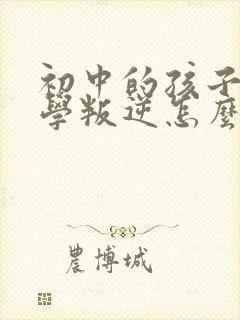 初中的孩子
學叛逆怎麼
農博城